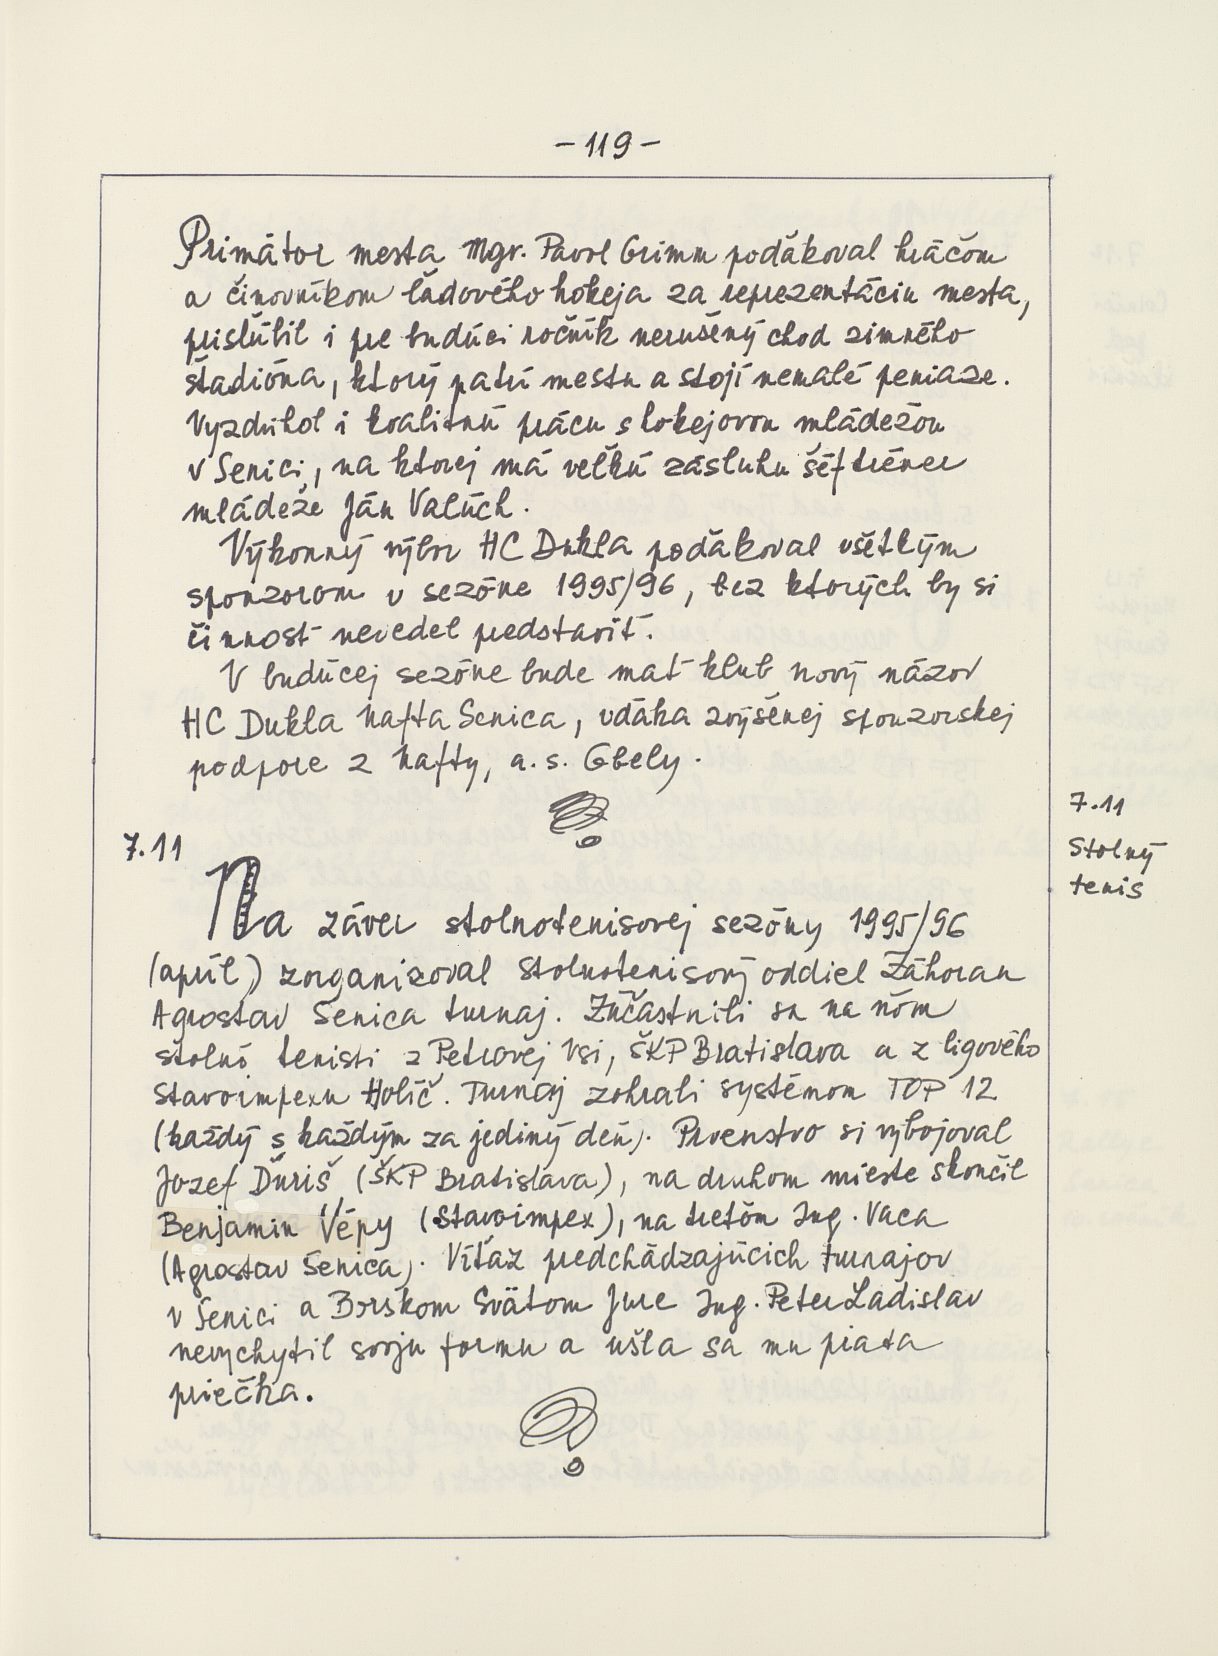 - 119 -
Primátor mesta Mgr. Pavol Grimm poďakoval hráčom
a činovníkom ľadového hokeja za reprezentáciu mesta,
prislúbil i pre budúci ročník nerušený chod zimného
štadióna, ktorý patrí mestu a stojí nemalé peniaze.
Vyzdvihol i kvalitnú prácu s hokejovou mládežou
v Senici, na ktorej má veľkú zásluhu šéftréner
mládeže Ján Valúch.
Výkonný výbor HC Dukla poďakoval všetkým
sponzorom v sezóne 1995/96, bez ktorých by si
činnosť nevedel predstaviť.
V budúcej sezóne bude mať klub nový názov
HC Dukla Nafta Senica, vďaka zvýšenej sponzorskej
podpore z Nafty, a.s. Gbely.
7.11
7.11
Stolný
tenis
Na záver stolnotenisovej sezóny 1995/96
(apríl) zorganizoval stolnotenisový oddiel Záhoran
Agrostav Senica turnaj. Zúčastnili sa na ňom
stolní tenisti z Petrovej Vsi, ŠKP Bratislava a z ligového
Stavoimpexu Holíč. Turnaj zohrali systémom TOP 12
(každý s každým za jediný deň). Prvenstvo si vybojoval
Jozef Ďuriš (ŠKP Bratislava), na druhom mieste skončil
Benjamin Vépy (Stavoimpex), na treťom Ing. Vaca
(Agrostav Senica). Víťaz predchádzajúcich turnajov
v Senici a Borskom Svätom Jure Ing. Peter Ladislav
nevychytil svoju formu a ušla sa mu piata
priečka.